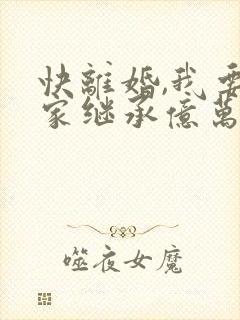 快離婚,我要
家继承億萬
噬夜女魔